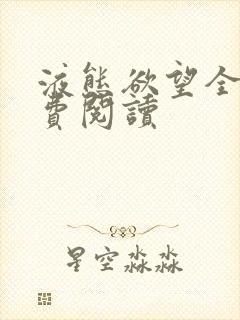 液態欲望全
費閱讀
星空淼淼